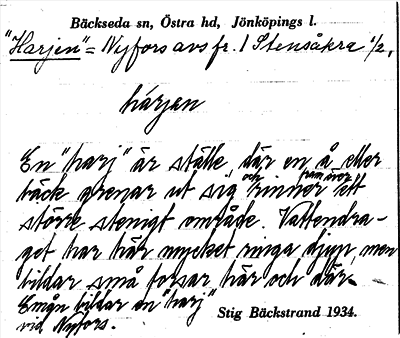 Bäckseda sn, Östra hd, Jönköpings l.
"Harjen" = Nyfors avs fr. 1 Stensåkra 1/2,
härjen
En "harj" är ställe där en å eller
bäck grenar ut sig och rinner fram över ett
större stenigt område. Vattendra-
get har här mycket ringa djup, men
bildar små forsar här och där.
Emån bildar en "harj"
vid Nyfors.
Stig Bäckstrand 1934.